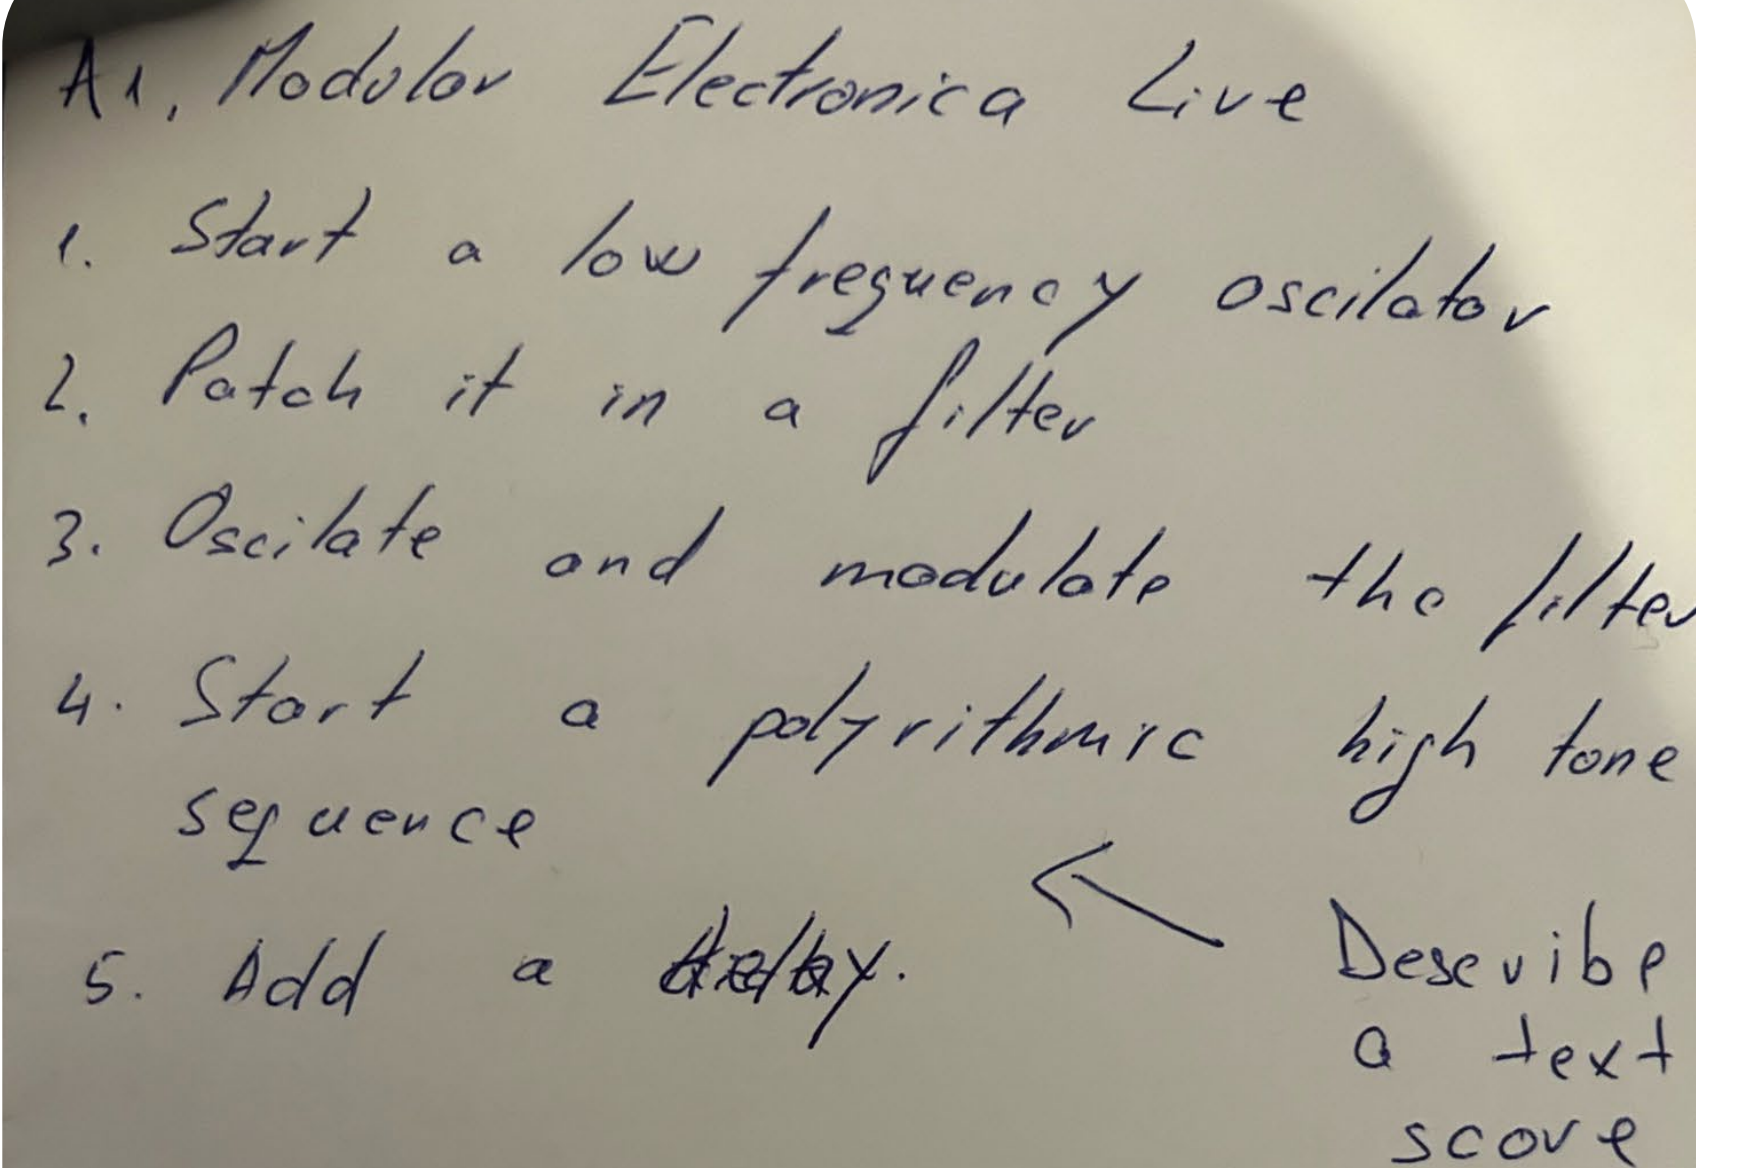 A1, Modular Electronica Live
1. Start a low frequency oscilator
2. Patch it in a filter
3. Oscilate and modulate the filter
4. Start a polyrithmic high tone
sequence
5. Add a delay.
Describe
a text
score